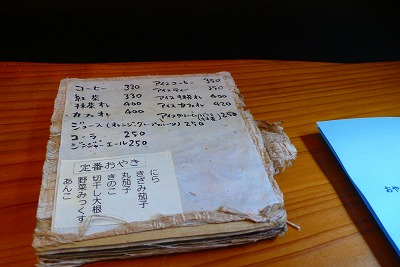 コーヒー 330
紅茶 330
抹茶オレ 400
カフェオレ 400
アイスコーヒー 350
アイスティー 350
アイス抹茶オレ 400
アイスカフェオレ 420
アイスクリーム 250
ジュース(オレンジ・グレープフルーツ) 250
コーラ 250
ジンジャーエール 250
定番おやき
にら
きざみ茄子
丸茄子
きのこ
切干し大根
野菜みっくす
あんこ
おや